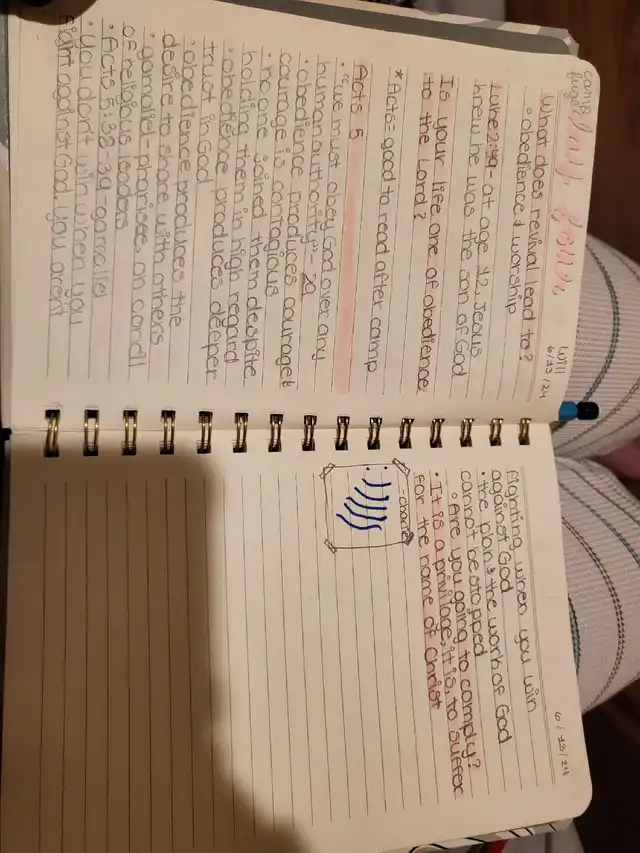 camp
fuge
Will
6/13/24
What does revival lead to?
◦ obedience & worship
Luke 2:49 - at age 12, Jesus
knew he was the son of God
Is your life one of obedience
to the Lord?
*Acts = good to read after camp
Acts 5
• "we must obey God over any
human authority" - 29
• obedience produces courage &
courage is contagious
• no one joined them despite
holding them in high regard
• obedience produces deeper
trust in God
• obedience produces the
desire to share with others
• gamaliel - pharisee, on concil
of religious leaders
• Acts 5:38-39 - gamaliel
• you don't win when you
fight against God, you arent
6/13/24
fighting when you win
against God
• the plan & the work of God
cannot be stopped
◦ Are you going to comply?
• It is a privilage, it is, to suffer
for the name of Christ